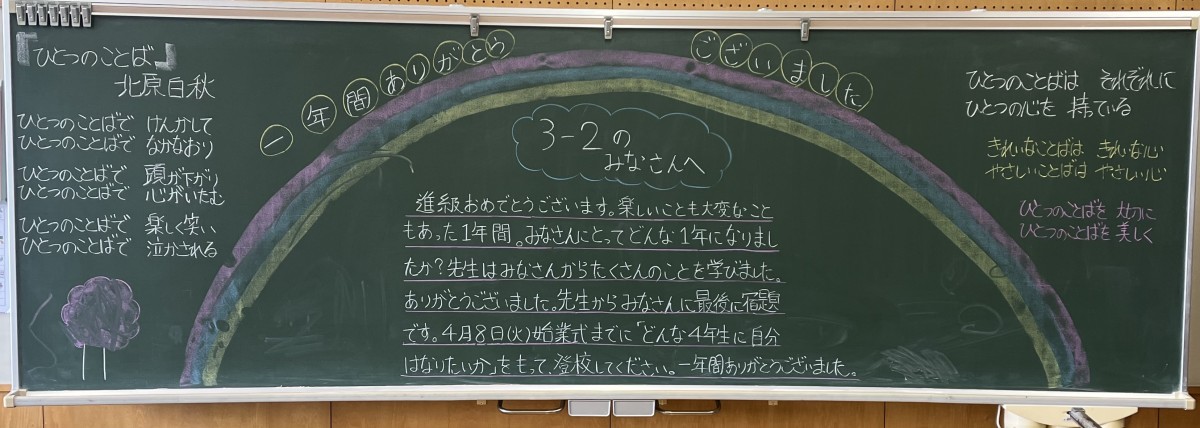 『ひとつのことば』
北原白秋
ひとつのことばで けんかして
ひとつのことばで なかなおり
ひとつのことばで 頭が下がり
ひとつのことばで 心がいたむ
ひとつのことばで 楽しく笑い
ひとつのことばで 泣かされる
一年間ありがとうございました
3-2の
みなさんへ
進級おめでとうございます。楽しいことも大変なこと
もあった1年間。みなさんにとってどんな1年になりまし
たか?先生はみなさんからたくさんのことを学びました。
ありがとうございました。先生からみなさんに最後に宿題
です。4月8日(火)始業式までに「どんな4年生に自分
はなりたいか」をもって、登校してください。一年間ありがとうございました。
ひとつのことばは それぞれに
ひとつの心を 持ている
きれいなことばは きれいな心
やさしいことばは やさしい心
ひとつのことばを 大切に
ひとつのことばを 美しく